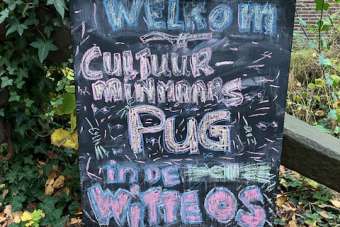 WELKOM
CULTUUR-
MINNAARS
PUG
IN DE
WITTE OS